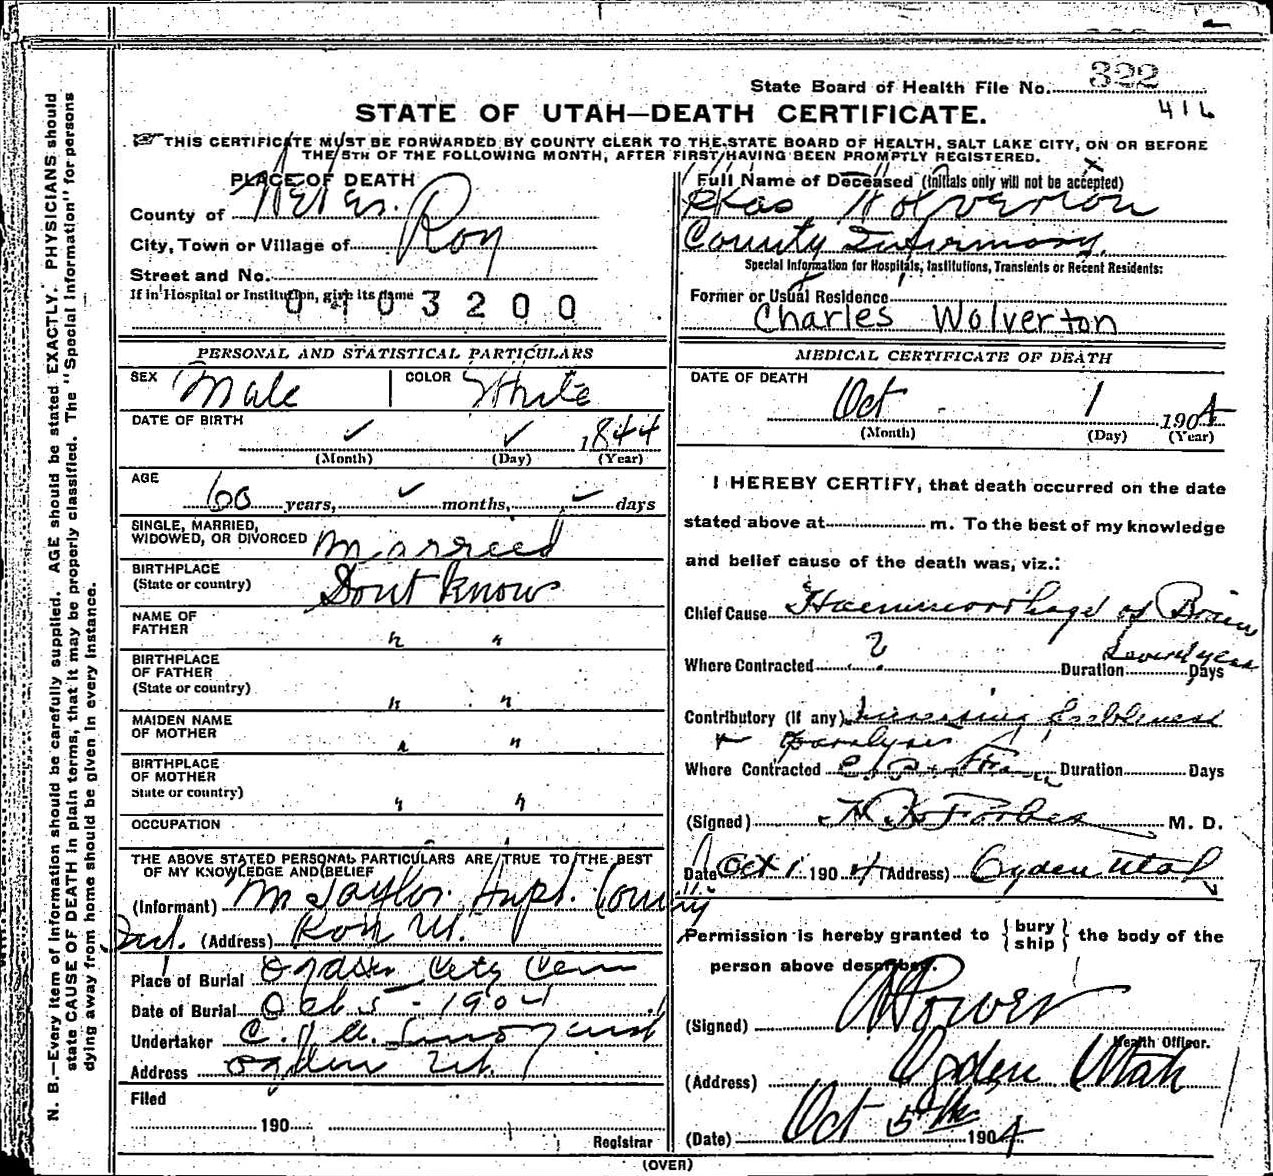 State Board of Health File No. 322
416
STATE OF UTAH—DEATH CERTIFICATE.
THIS CERTIFICATE MUST BE FORWARDED BY COUNTY CLERK TO THE STATE BOARD OF HEALTH, SALT LAKE CITY, ON OR BEFORE
THE 5TH OF THE FOLLOWING MONTH, AFTER FIRST HAVING BEEN PROMPTLY REGISTERED.
PLACE OF DEATH
County of
City, Town or Village of Roy
Street and No.
If in Hospital or Institution, give its name
0403200
Full Name of Deceased (Initials only will not be accepted)
Chas Wolverton
County Infirmary.
Special Information for Hospitals, Institutions, Transients or Recent Residents:
Former or Usual Residence
Charles Wolverton
PERSONAL AND STATISTICAL PARTICULARS
SEX Male COLOR White
DATE OF BIRTH 1844
(Month) (Day) (Year)
AGE
60 years, months, days
SINGLE, MARRIED,
WIDOWED, OR DIVORCED Married
BIRTHPLACE
(State or country) Dont Know
NAME OF
FATHER " "
BIRTHPLACE
OF FATHER
(State or country) " "
MAIDEN NAME
OF MOTHER " "
BIRTHPLACE
OF MOTHER
State or country) " "
OCCUPATION
THE ABOVE STATED PERSONAL PARTICULARS ARE TRUE TO THE BEST
OF MY KNOWLEDGE AND BELIEF
(Informant) M Taylor Supt. County
Inf. (Address) Roy Ut.
Place of Burial Ogden City Cem
Date of Burial Oct 5 - 1904
Undertaker
Address Ogden Ut.
Filed
190
Registrar
MEDICAL CERTIFICATE OF DEATH
DATE OF DEATH
Oct 1 1904
(Month) (Day) (Year)
I HEREBY CERTIFY, that death occurred on the date
stated above at m. To the best of my knowledge
and belief cause of the death was, viz.:
Chief Cause Haemmorrhage of Brain
Several years
Where Contracted ? Duration Days
Contributory (If any) Increasing feebleness
+ paralysis
Where Contracted Duration Days
(Signed) Forbes M. D.
Date Oct 1 1904 (Address) Ogden Utah
Permission is hereby granted to {bury ship} the body of the
person above described.
(Signed) Power
Health Officer.
(Address) Ogden Utah
(Date) Oct 5th 1904
(OVER)
N. B.—Every item of information should be carefully supplied. AGE should be stated EXACTLY. PHYSICIANS should
state CAUSE OF DEATH in plain terms, that it may be properly classified. The "Special Information" for persons
dying away from home should be given in every instance.